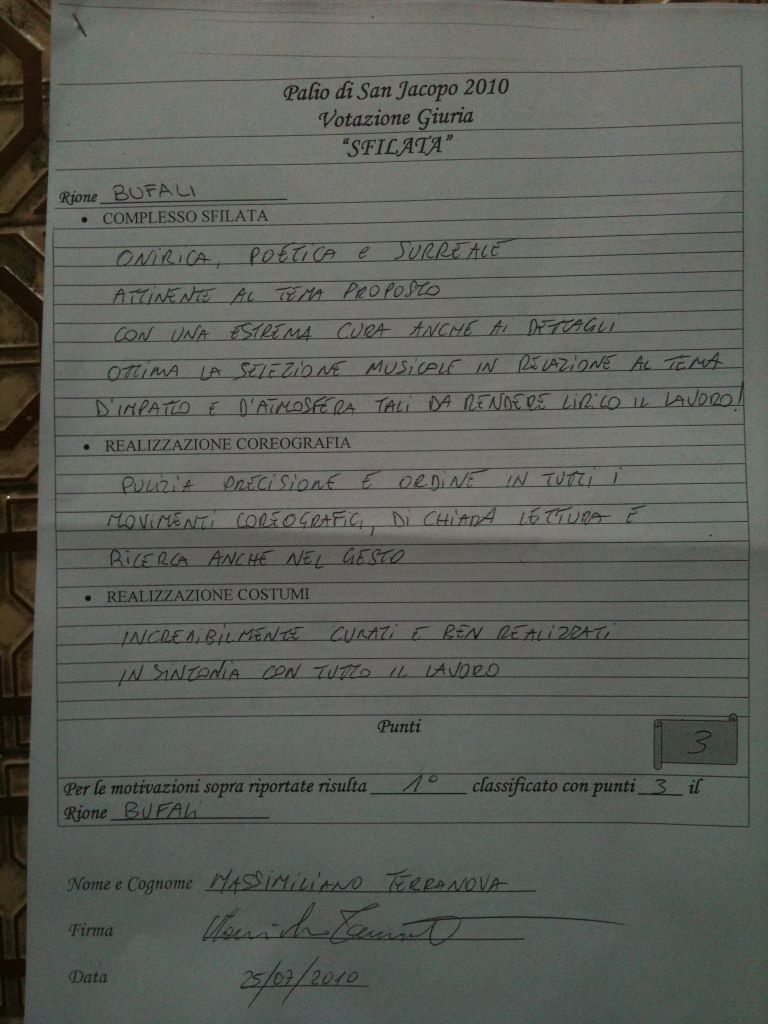 Palio di San Jacopo 2010
Votazione Giuria
"SFILATA"
Rione BUFALI
• COMPLESSO SFILATA
ONIRICA, POETICA e SURREALE
ATTINENTE AL TEMA PROPOSTO
CON UNA ESTREMA CURA ANCHE AI DETTAGLI
OTTIMA LA SELEZIONE MUSICALE IN RELAZIONE AL TEMA
D'IMPATTO E D'ATMOSFERA TALI DA RENDERE LIRICO IL LAVORO!
• REALIZZAZIONE COREOGRAFIA
PULIZIA PRECISIONE E ORDINE IN TUTTI I
MOVIMENTI COREOGRAFICI, DI CHIARA LETTURA E
RICERCA ANCHE NEL GESTO
• REALIZZAZIONE COSTUMI
INCREDIBILMENTE CURATI E BEN REALIZZATI
IN SINTONIA CON TUTTO IL LAVORO
Punti
3
Per le motivazioni sopra riportate risulta 1° classificato con punti 3 il
Rione BUFALI
Nome e Cognome MASSIMILIANO TERRANOVA
Firma
Data 25/07/2010